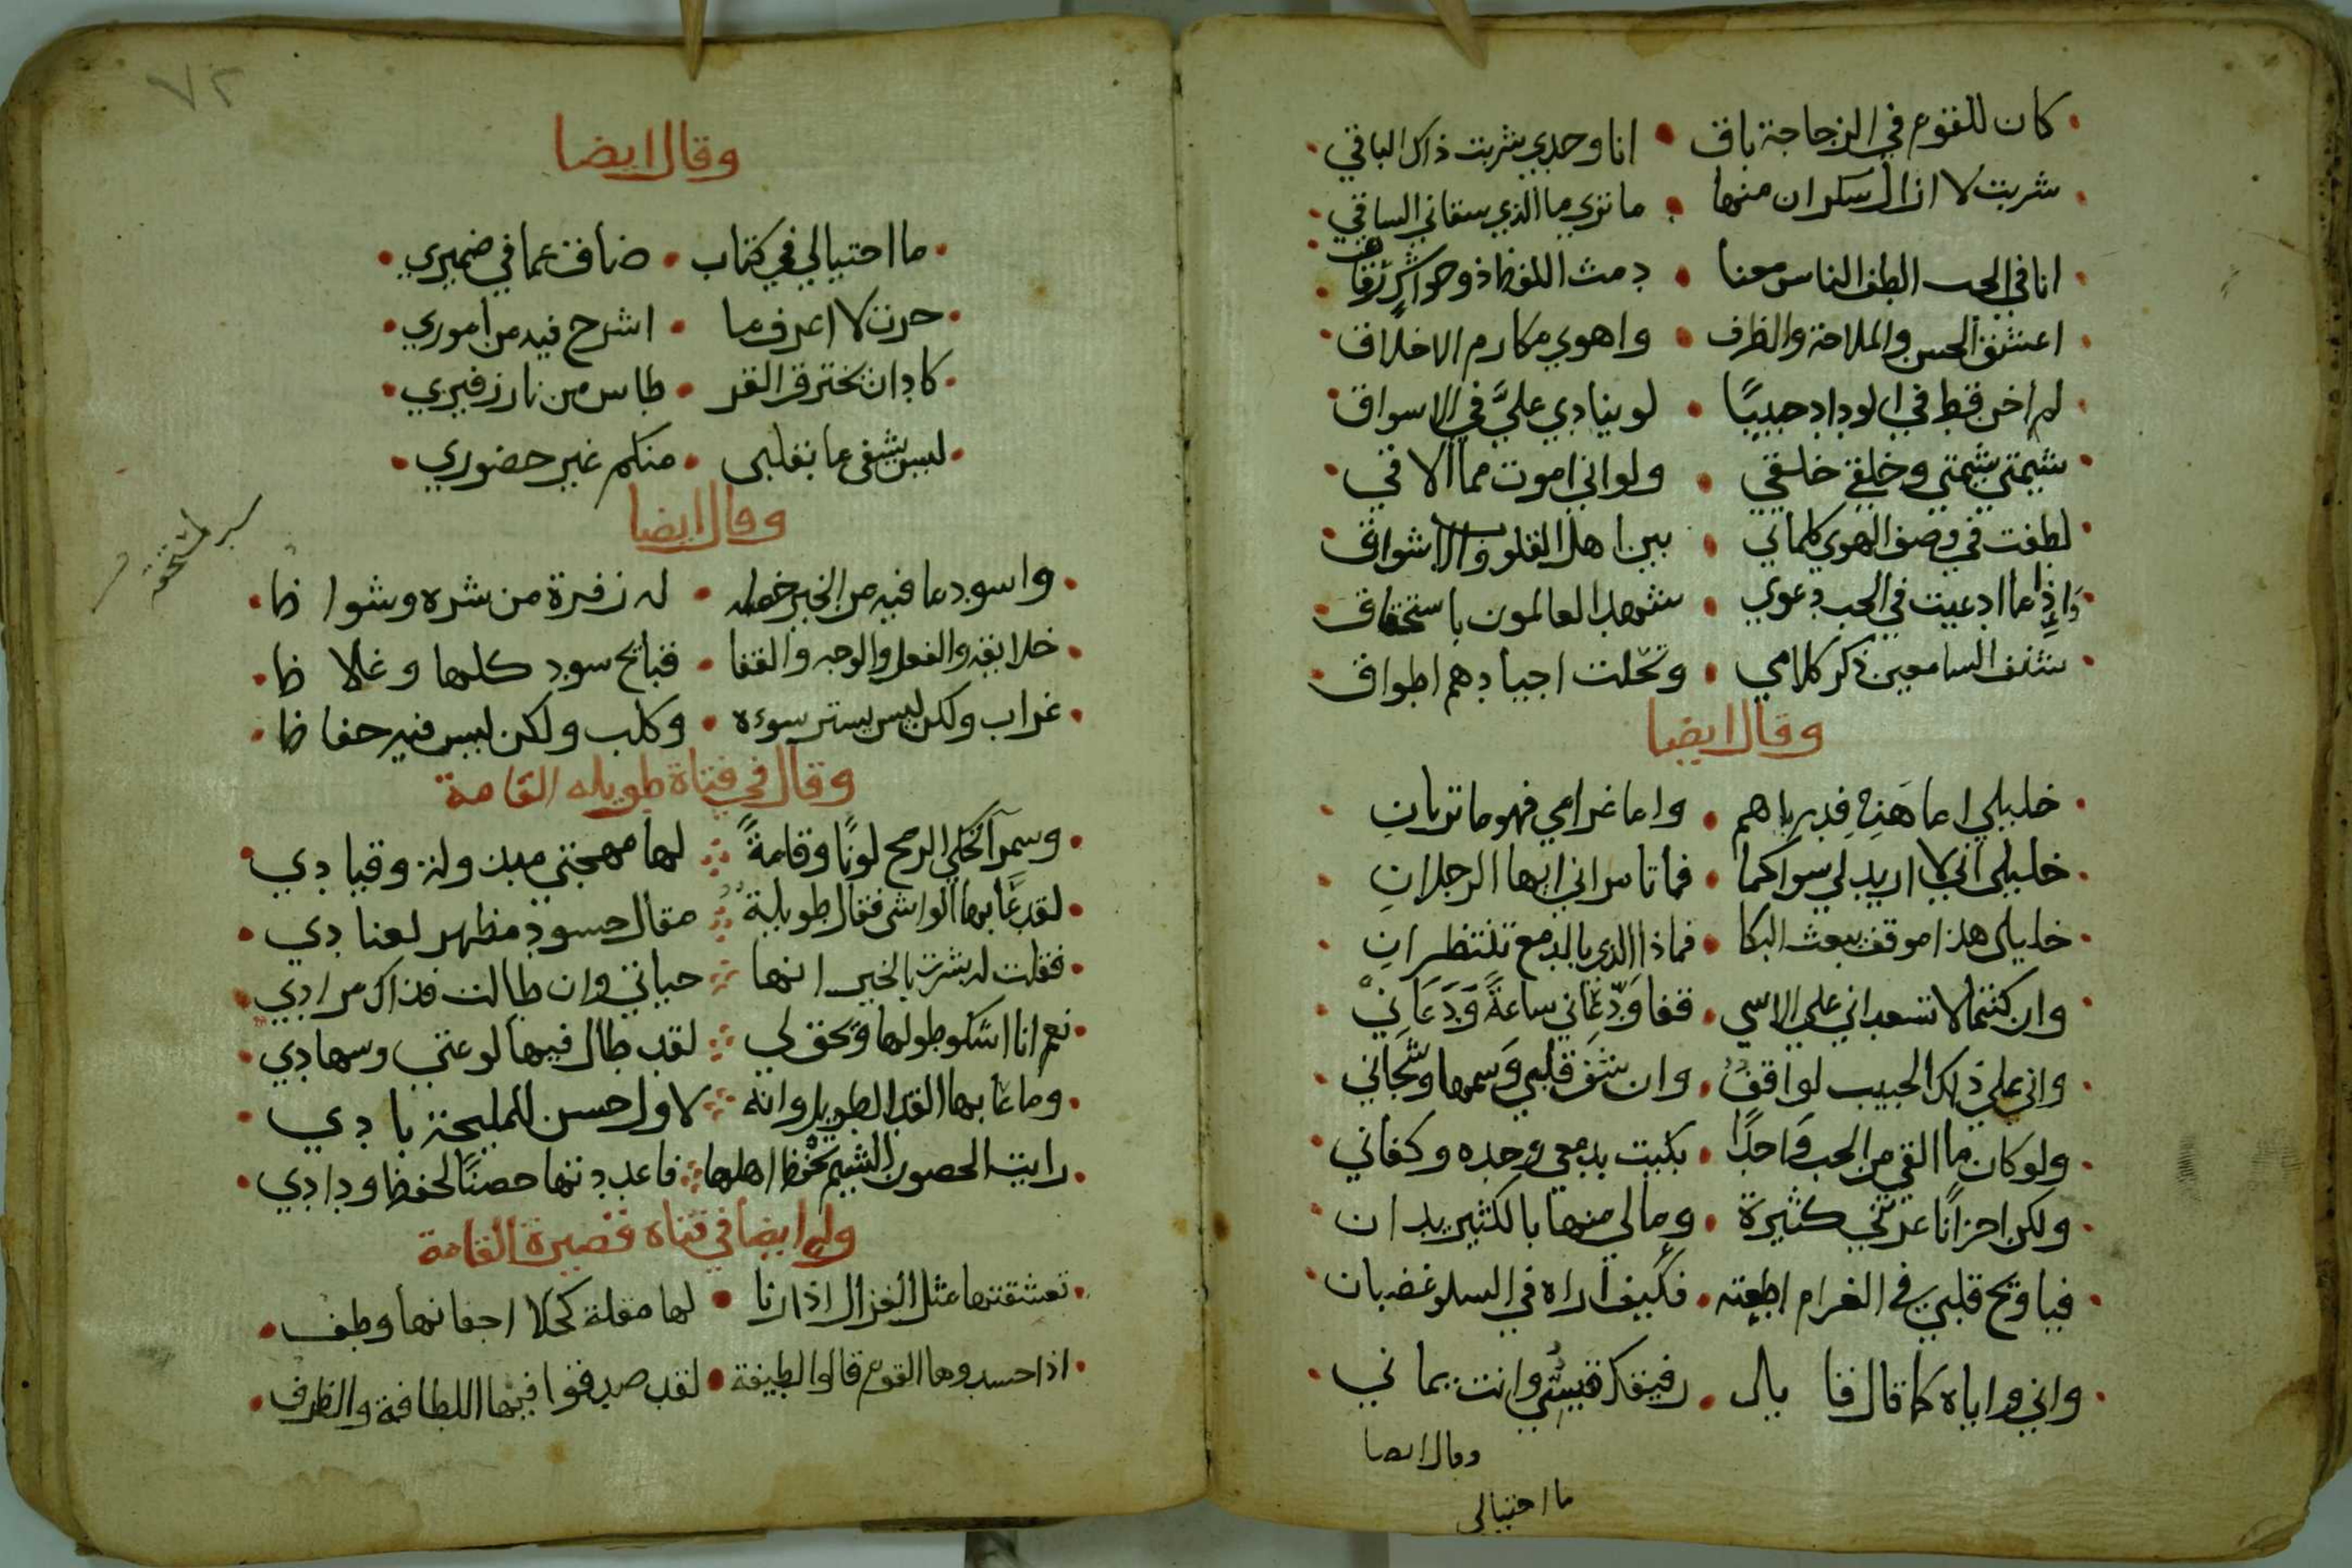 كان للقوم في الزجاجة باق • انا وحدي شربت ذاك الباقي
شربت لا ازال سكران منها • ما تري ما الذي سقاني الساقي
انا في الحب الطف الناس معنا • دمث اللفظ ذو حواش رقاق
اعشق الحسن والملاحة والظرف • واهوي مكارم الاخلاق
لم اخن قط في الوداد حبيبًا • لو ينادي عليَّ في الاسواق
شيمتي شيمتي وخلقي خلقي • ولو اني اموت مما الاقي
لطفت في وصف الهوي كلماتي • بين اهل القلوب والاشواق
وَاِذا ما ادعيت في الحب دعوي • شهد العالمون باستحقاق
شنف السامعين ذكر كلامي • وتحلت اجيادهم اطواق
وقال ايضا
خليلي اما هَذِهِ فديارهم • واما غرامي فهو ما تريانِ
خليلي اني لا اريد لي سواكما • فما تامراني ايها الرجلانِ
خليلي هذا موقف يبعث البكا • فماذا الذي بالدمع تنتظرانِ
وان كنتما لا تسعداني علي الاسي • قفا وَدّعاني ساعةً وَدَعَانيْ
واني علي ذلك الحبيب لواقف • وان شف قلبي وسمها وشجاني
ولو كان ما القي من الحب واحدًا • بكيت بدمعي وحده وكفاني
ولكن احزانًا عرتني كثيرة • وما لي منها بالكثير يدان
فيا ويح قلبي في الغرام اطعته • فكيف اراه في السلو غضبان
واني واياه كما قال قايل • رفيقك قيسي وانت يماني
وقال ايضا
ما احتيالي
٧٢
وقال ايضا
ما احتيالي في كتاب • ضاق عما في ضميري
حرت لا اعرف ما • اشرح فيه من اموري
كاد ان يحترق القر • طاس من نار زفيري
ليس يشفي ما بقلبي • منكم غير حضوري
وقال ايضا
واسود ما فيه من الخير خصله • له زفرة من شره وشواظ
خلايقه والفعل والوجه والقفا • قبايح سود كلها وغلاظ
غراب ولكن ليس يستر سوءه • وكلب ولكن ليس فيه حفاظ
وقال في فتاة طويله القامة
وسمرآ تحكي الرمح لونًا وقامةً • لها مهجتي مبذولة وقيادي
لقد عابها الواشي فقال طويلة • مقال حسود مظهر لعنادي
فقلت له بشرت بالخير انها • حياتي وان طالت فذاك مرادي
نعم انا اشكو طولها ويحق لي • لقد طال فيها لوعتي وسهادي
وما عابها القد الطويل وانه • لاول حسن للمليحة بادي
رايت الحصون الشم تحفظ اهلها • فاعددتها حصنًا لحفظ ودادي
وله ايضا في فتاه قصيرة القامة
تعشقتها مثل الغزال اذا رنا • لها مقلة كحلا اجفانها وطف
اذا حسدوها القوم قالوا لطيفة • لقد صدقوا فيها اللطافة والظرف